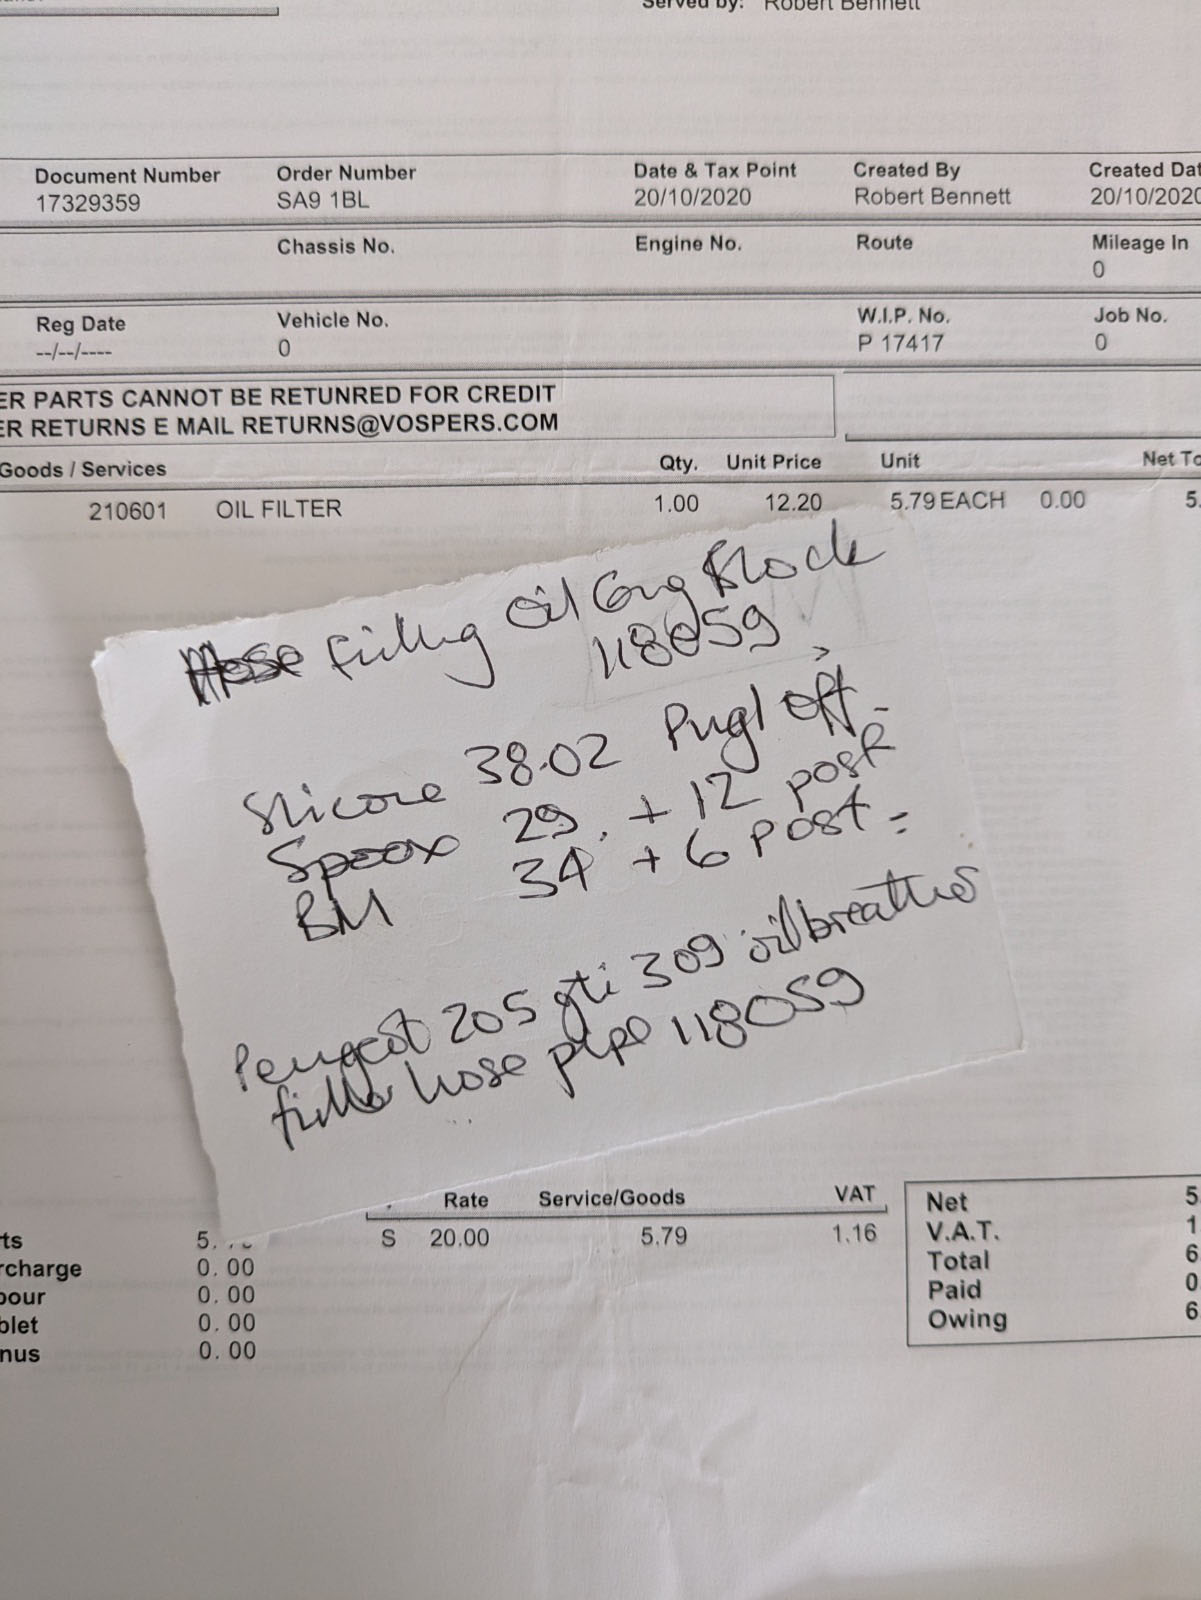 Served by: Robert Bennett
Document Number Order Number Date & Tax Point Created By Created Dat
17329359 SA9 1BL 20/10/2020 Robert Bennett 20/10/2020
Chassis No. Engine No. Route Mileage In
0
Reg Date Vehicle No. W.I.P. No. Job No.
--/--/---- 0 P 17417 0
ER PARTS CANNOT BE RETUNRED FOR CREDIT
ER RETURNS E MAIL RETURNS@VOSPERS.COM
Goods / Services Qty. Unit Price Unit Net To
210601 OIL FILTER 1.00 12.20 5.79 EACH 0.00 5.
Hose Filling Oil Eng Block
118059
38.02 Pugl off.
Spoox 29. + 12 post
BM 34 + 6 post =
Peugeot 205 gti 309 oil breather
filler hose pipe 118059
Rate Service/Goods VAT
S 20.00 5.79 1.16
Net 5
V.A.T. 1
Total 6
Paid 0
Owing 6
ts 5.
rcharge 0.00
bour 0.00
blet 0.00
nus 0.00